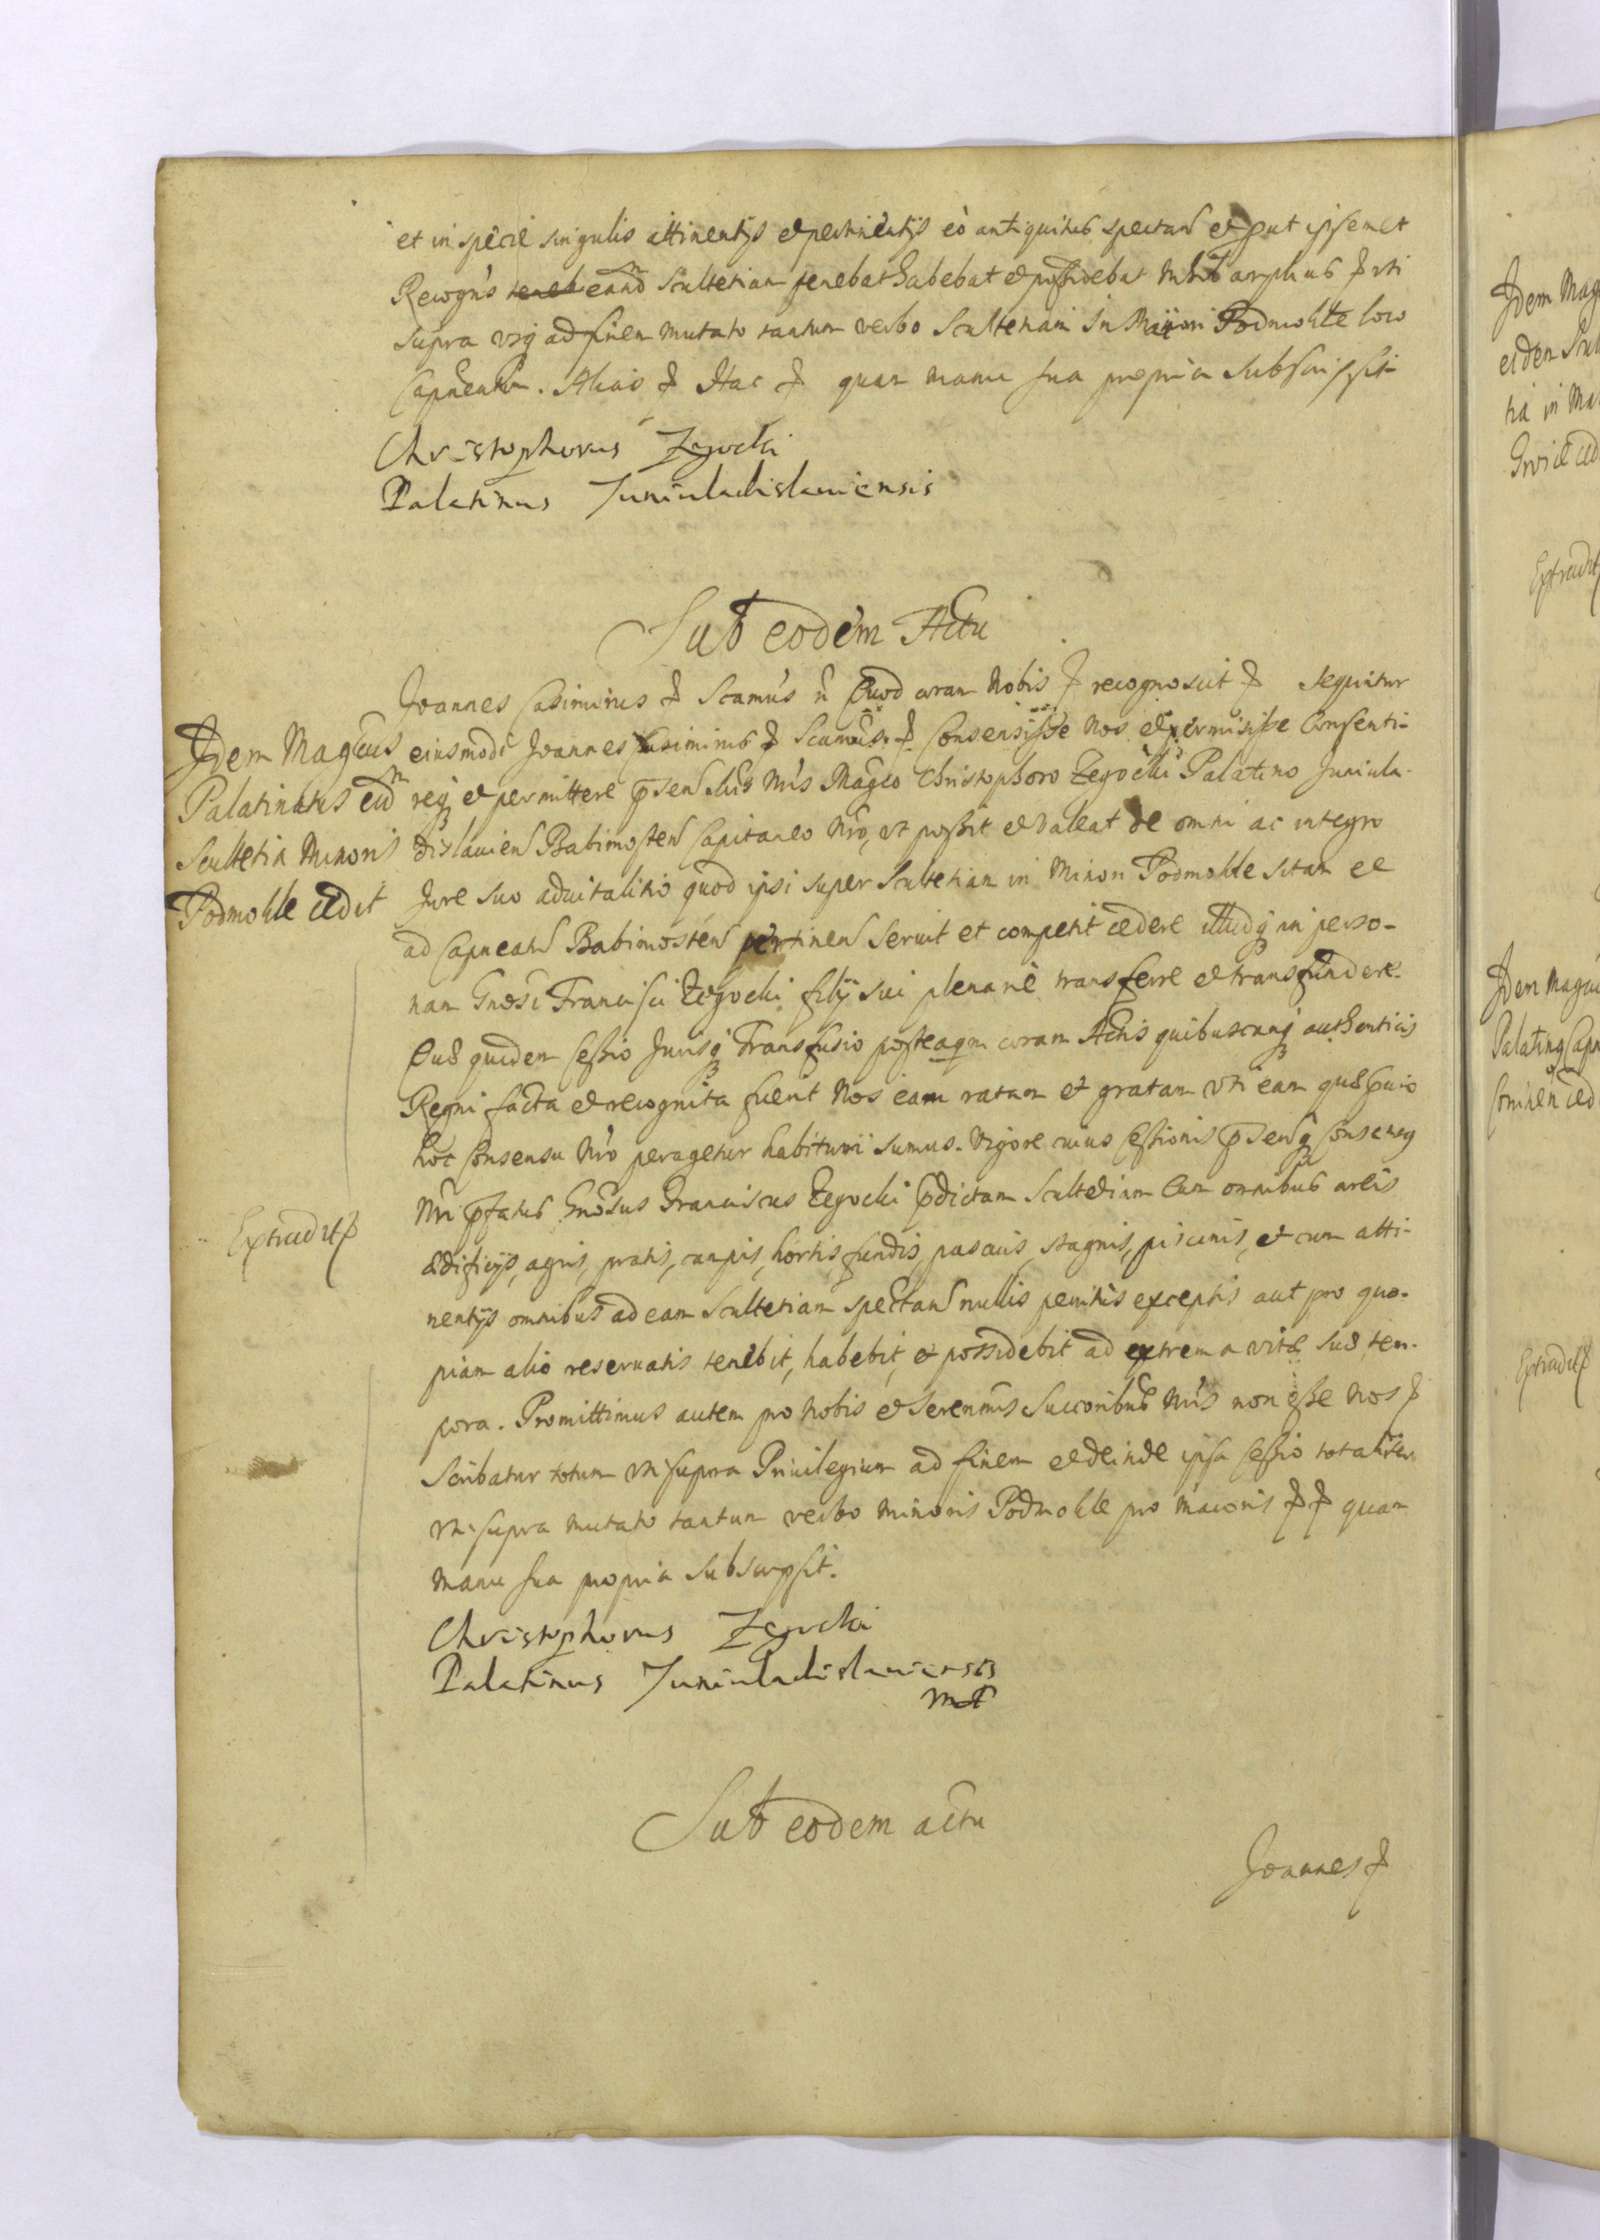 et in specie singulis attinentijs et pertinentijs eo antiquitus spectan et put ipsemet
Recogns eand Scultetiam tenebat habebat et possidebat nihil amplius uti
supra usq ad finem mutato tantum verbo Scultetiam in Maiori Podmokle loco
Capneatum. Alias Hac quam manu sua propria Subscripsit
Christophorus Zegocki
Palatinus Juniuladislauiensis
Sub eodem Actu
Joannes Casimirus Scamus Quod coram Nobis recognoscit sequitur
Idem Magcus
eiusmodi Joannes Casimirus Scamus Consensisse Nos et permisisse Consenti-
Palatinatus eid
req et permittere psen Mag̃co Christophoro Zegocki Palatino Juniula-
Scultetia Minoris
dislauien Babimosten Capitaneo Nro, ut possit et valeat de omni ac integro
Podmokle cedit
Jure suo aduitalitio quod ipsi super Scultetiam in Minori Podmokle sitam et
ad Capneatu Babimosten pertinen seruit et competit cedere illudq in perso-
nam Gnosi Francisci Zegocki filij sui plenarie transferre et transfundere.
Quæ quidem Cessio Jurisq Transfusio posteaqm coram Actis quibuscunq authenticis
Regni facta et recognita fuerit Nos eam ratam et gratam uti eam quæ
hoc Consensu Nro peragetur habituri sumus. Vigore cuius Cessionis psensq Consensus
Extradit
Nri pfatus Gnosus Franciscus Zegocki pdictam Scultetiam Cum omnibus areis
ædificijs, agris, pratis, campis, hortis fundis, pascuis, stagnis, piscinis, et cum atti-
nentijs omnibus ad eam Scultetiam spectan nullis penitus exceptis aut pro quo-
piam alio reseruatis tenebit, habebit, et possidebit ad extrema vitæ suæ tem-
pora. Promittimus autem pro Nobis et Serenmis Succoribus Nris non esse Nos
Scribatur totum ut supra Priuilegium ad finem et deinde ipsa Cessio totaliter
ut supra mutato tantum verbo Minoris Podmokle pro Maioris quam
manu sua propria subscripsit.
Christophorus Zegocki
Palatinus Juniuladislauiensis
mp
Sub eodem actu
Joannes
Idem Mag
eidem Scul
tia in Ma
Extradit
Idem Magcu
Palatinq Capn
Extradit